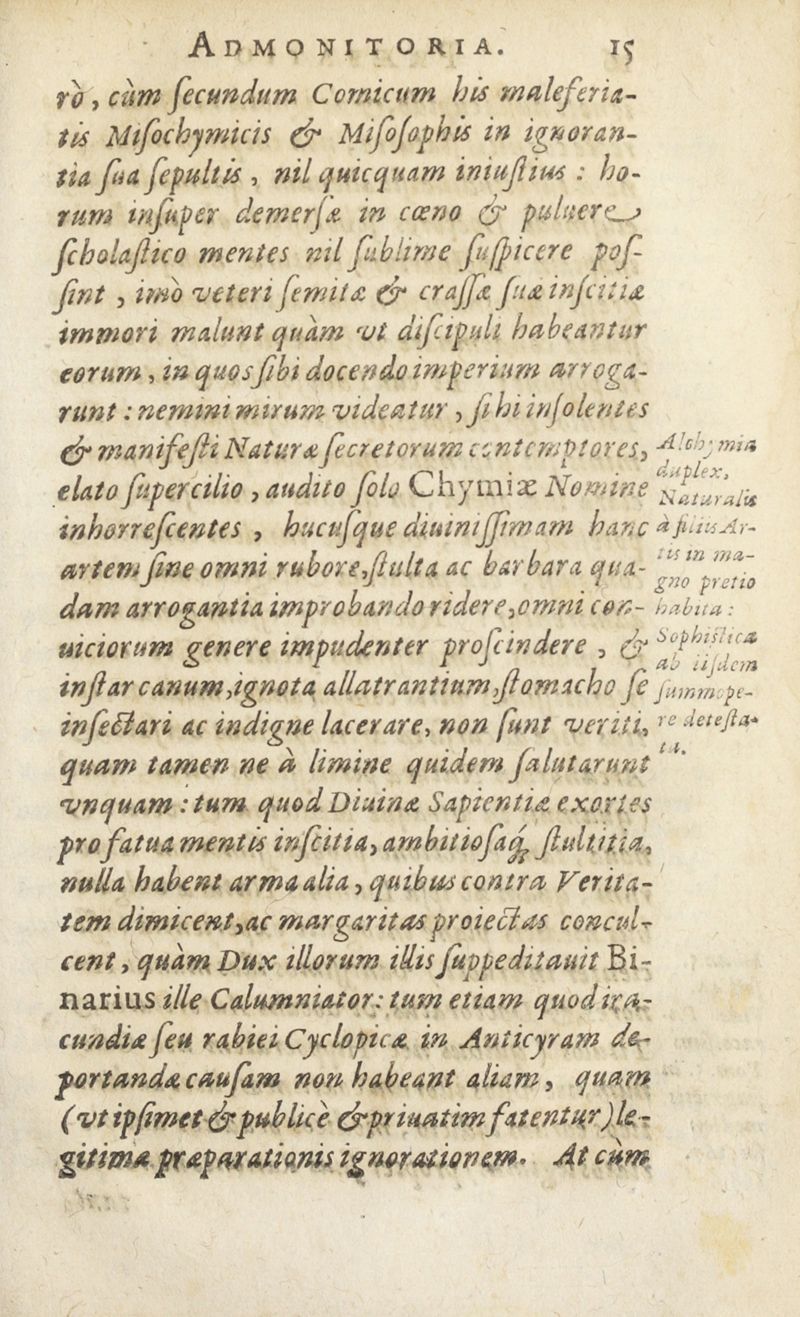 ADMONITORIA. 15
rò, cùm ſecundum Comicum his maleferia-
tis Miſochymicis & Miſoſophis in ignoran-
tia ſua ſepultis, nil quicquam iniuſtius : ho-
rum inſuper demerſæ in cœno & puluere
ſcholaſtico mentes nil ſublime ſuſpicere poſ-
ſint , imò veteri ſemitæ & craſſæ ſuæ inſcitiæ
immori malunt quàm vt diſcipuli habeantur
eorum, in quos ſibi docendo imperium arroga-
runt : nemini mirum videatur , ſi hi inſolentes
& manifeſti Naturæ ſecretorum contemptores,
elato ſupercilio , audito ſolo Chymiæ Nomine
inhorreſcentes , hucuſque diuiniſſimam hanc
artem ſine omni rubore, ſtulta ac barbara qua-
dam arrogantia improbando ridere, omni con-
uiciorum genere impudenter proſcindere , &
inſtar canum, ignota allatrantium, ſtomacho ſe
inſectari ac indigne lacerare, non ſunt veriti,
quam tamen ne à limine quidem ſalutarunt
vnquam : tum quod Diuinæ Sapientiæ exortes
pro fatua mentis inſcitia, ambitioſaq́; ſtultitia,
nulla habent arma alia, quibus contra Verita-
tem dimicent, ac margaritas proiectas concul-
cent, quàm Dux illorum illis ſuppeditauit Bi-
narius ille Calumniator: tum etiam quod ira-
cundiæ ſeu rabiei Cyclopicæ in Anticyram de-
portandæ cauſam non habeant aliam, quam
(vt ipſimet & publicè & priuatim fatentur) le-
gitimæ præparationis ignorationem. At cùm
Alchymia
duplex,
Naturalis
à filiis Ar-
tis in ma-
gno pretio
habita :
Sophiſtica
ab iiſdem
ſummope-
re deteſta-
ta.